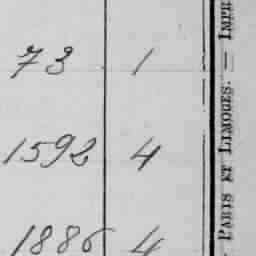 73 1
1592 4
1886 4
PARIS ET LIMOGES. — IMPR